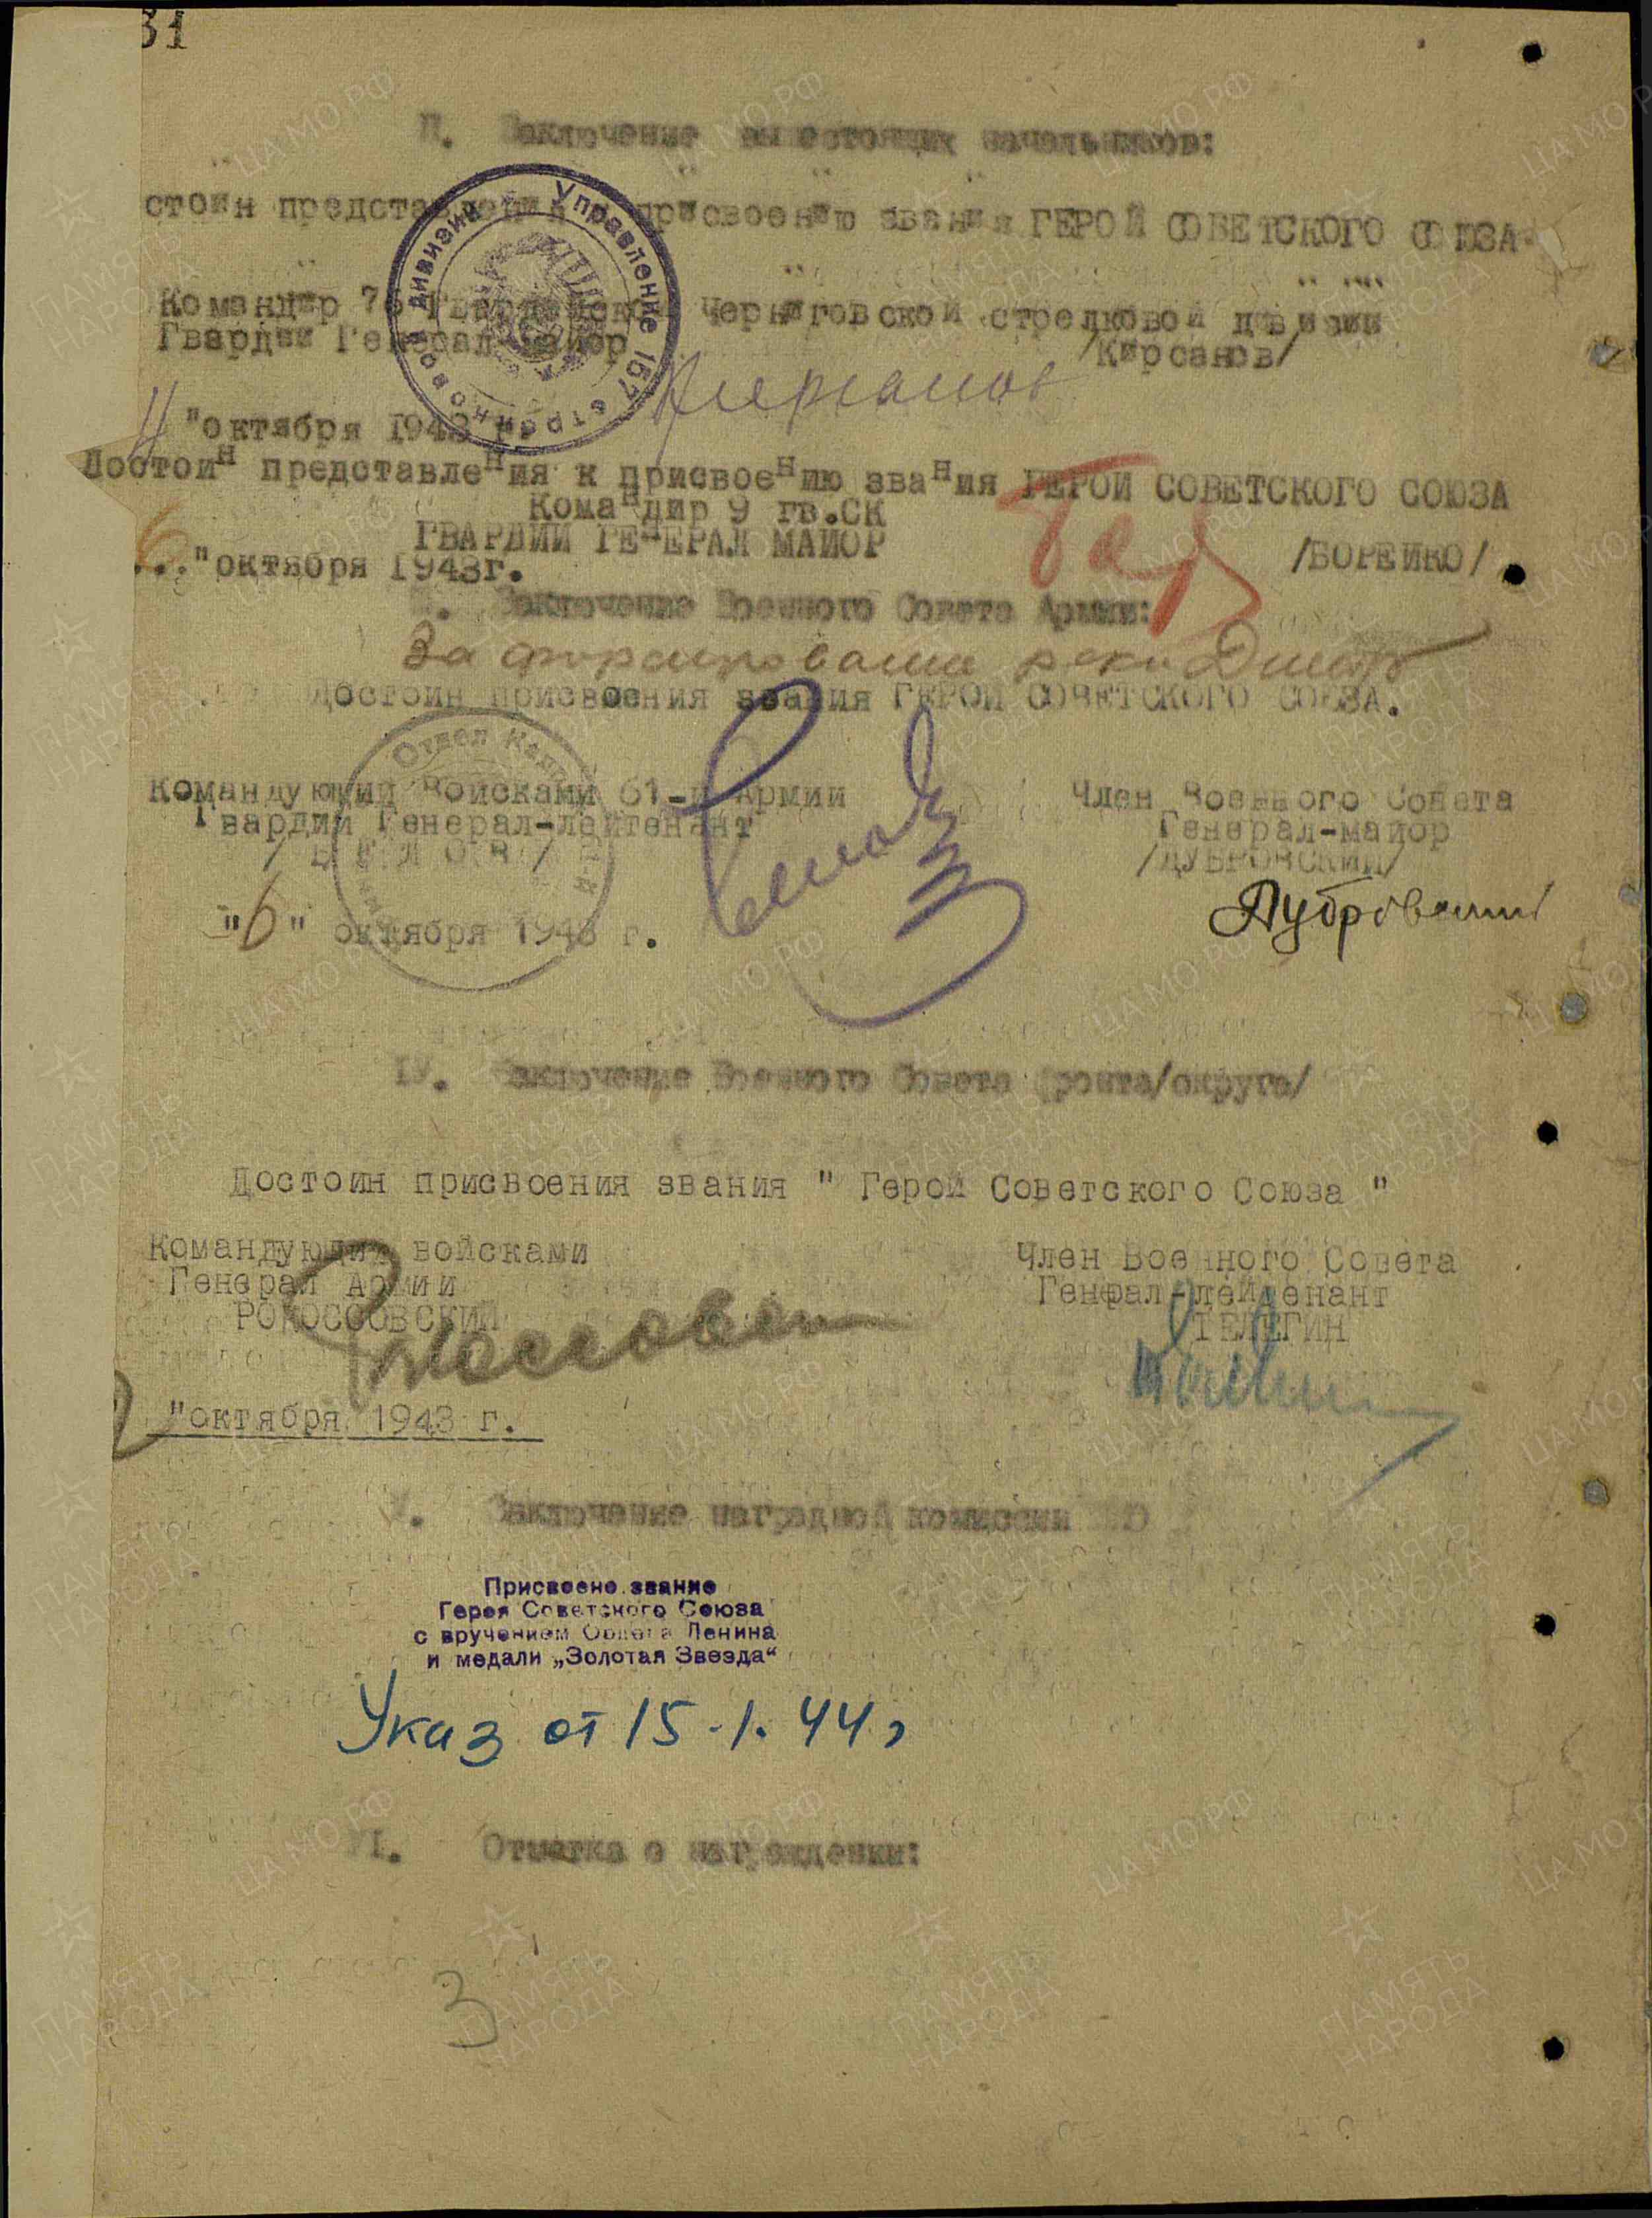 31
П. Заключение вышестоящих начальников:
стоин представления к присвоению звания ГЕРОЙ СОВЕТСКОГО СОЮЗА
Управление 157 стрелковой дивизии
Командир 76 Гвардейской Черниговской стрелковой дивизии
Гвардии Генерал-майор /Кирсанов/
Кирсанов
4 "октября 1943 г.
Достоин представления к присвоению звания ГЕРОЙ СОВЕТСКОГО СОЮЗА
Командир 9 гв.СК
ГВАРДИИ ГЕНЕРАЛ МАЙОР /БОРЕЙКО/
6..."октября 1943г.
Заключение Военного Совета Армии:
За форсирование реки Днепр
Достоин присвоения звания ГЕРОЙ СОВЕТСКОГО СОЮЗА.
Отдел
Командующий Войсками 61-й Армии Член Военного Совета
Гвардии Генерал-лейтенант Генерал-майор
/БЕЛОВ/ /ДУБРОВСКИЙ/
Белов
Дубровский
"6" октября 1943 г.
IУ. Заключение Военного Совета фронта/округа/
Достоин присвоения звания " Герой Советского Союза "
Командующий войсками Член Военного Совета
Генерал Армии Генфрал-лейденант
РОКОССОВСКИЙ ТЕЛЕГИН
"октября 1943 г.
У. Заключение наградной комиссии НКО
Присвоено звание
Героя Советского Союза
с вручением Ордена Ленина
и медали „Золотая Звезда“
Указ от 15.1.44г
УI. Отметка о награждении:
3
ПАМЯТЬ НАРОДА
ЦА МО РФ